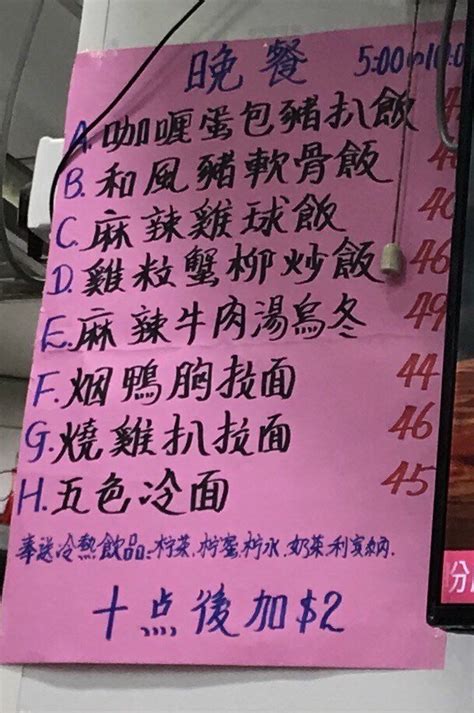 晚餐 5:00
A. 咖喱蛋包豬扒飯
B. 和風豬軟骨飯
C. 麻辣雞球飯 40
D. 雞粒蟹柳炒飯 46
E. 麻辣牛肉湯烏冬 49
F. 烟鴨胸拉面 44
G. 燒雞扒拉面 46
H. 五色冷面 45
奉送冷熱飲品:柠茶.柠蜜.柠水.奶茶.利宾納.
十点後加$2